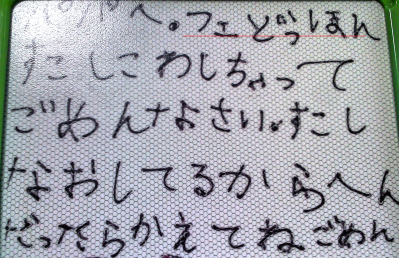 パパへ。フェどらっほん
すこしこわしちゃって
ごめんなさい。すこし
なおしてるからへん
だったらかえてねごめん